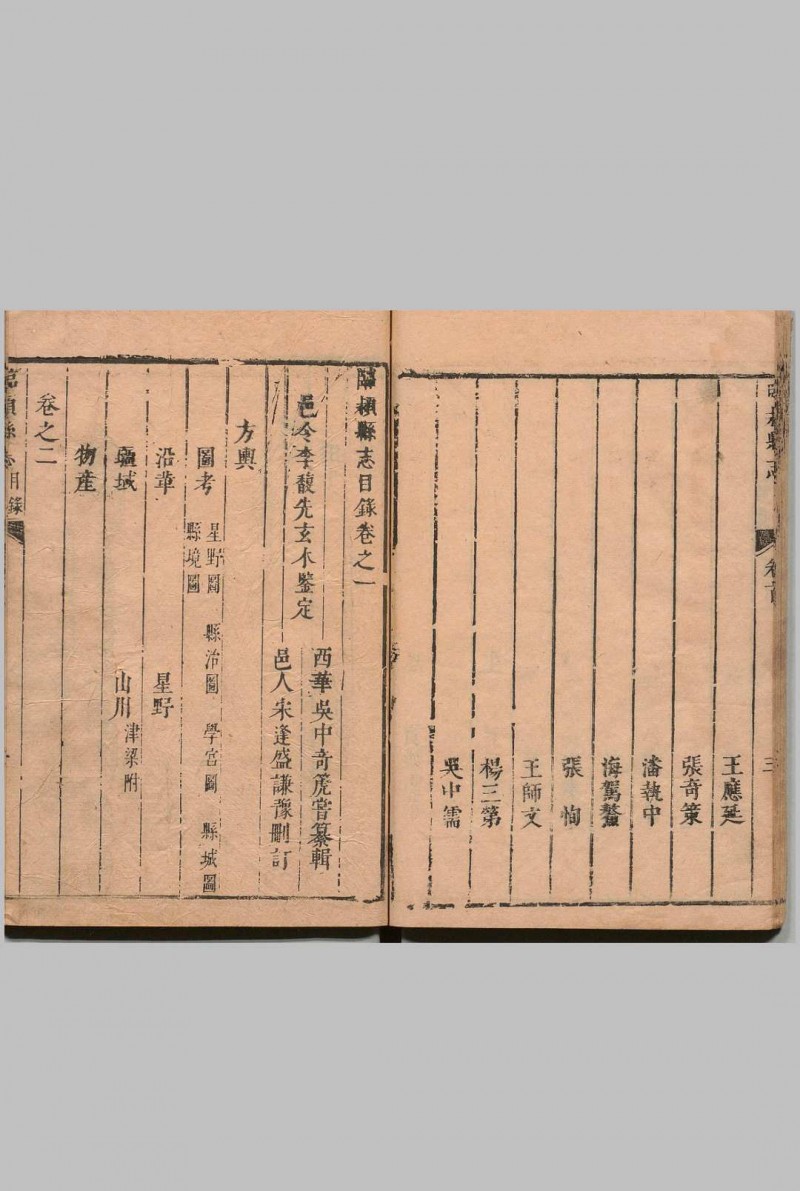 臨潁縣志
卷首
三
王應延
張奇策
潘執中
海駕鰲
張恂
王師文
楊三第
吳中儒
臨潁縣志目錄卷之一
邑令李馥先玄木鑒定
西華吳中奇箎嘗纂輯
邑人宋逢盛謙豫刪訂
方輿
圖考 星野圖 縣治圖 學宮圖 縣城圖
縣境圖
沿革 星野
疆域 山川 津梁附
物産
卷之二
臨潁縣志目錄